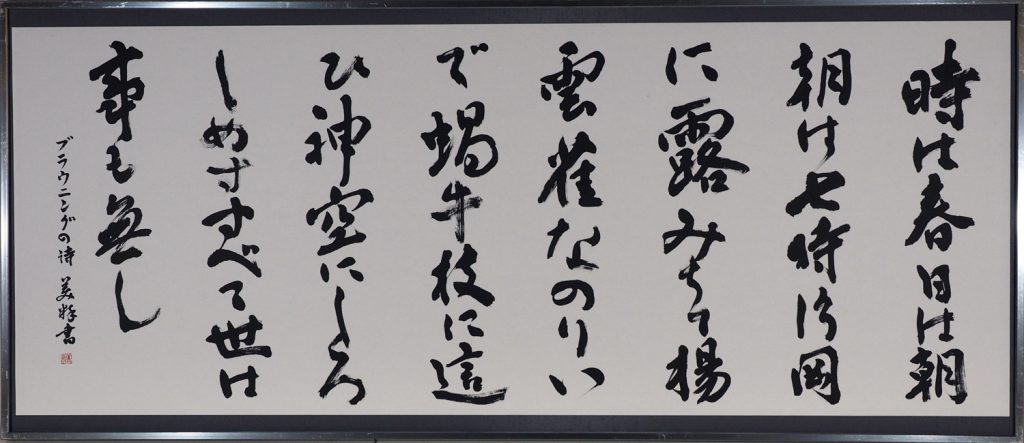 時は春日は朝
朝は七時片岡
に露みちて揚
雲雀なのりい
で蝸牛枝に這
ひ神空にしろ
しめすすべて世は
事も無し
ブラウニングの詩 美 書